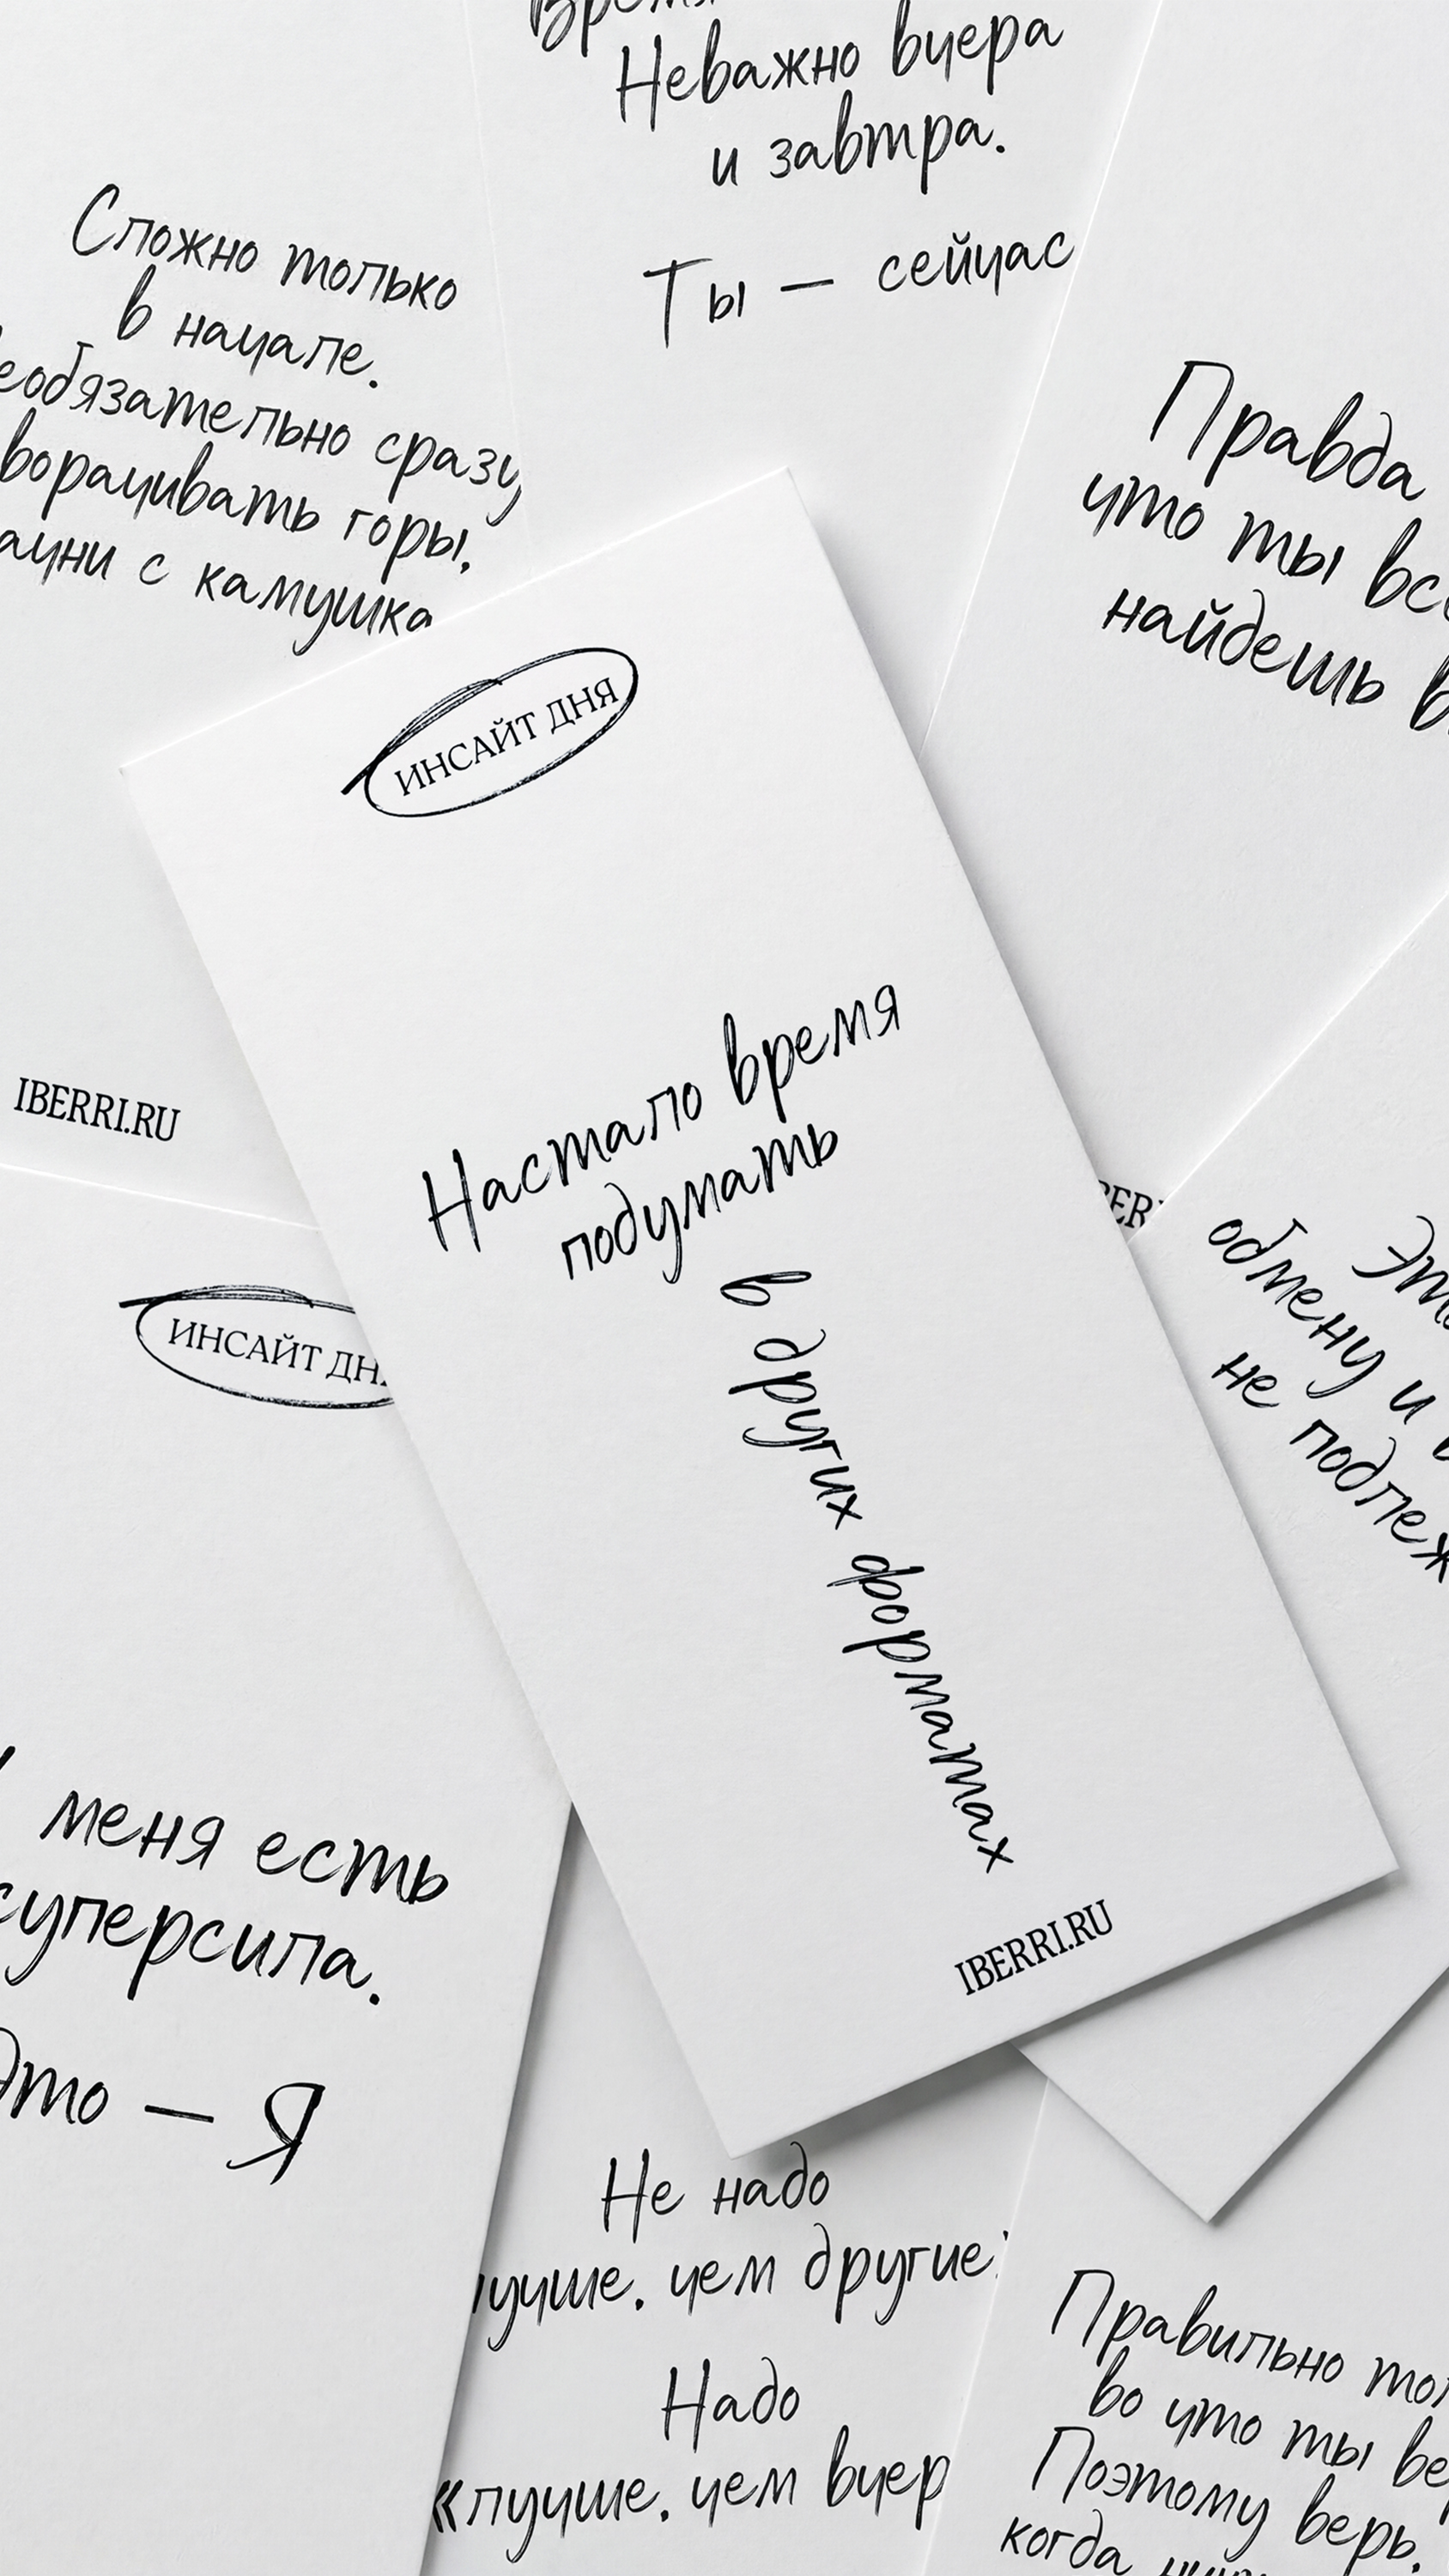 Неважно вчера
и завтра.
Ты — сейчас
Сложно только
в начале.
еобязательно сразу
ворачивать горы,
ачни с камушка
IBERRI.RU
Правда
что ты вс
найдешь в
ИНСАЙТ ДНЯ
Настало время
подумать
в других форматах
IBERRI.RU
BER
Эт
обмену и в
не подлеж
ИНСАЙТ ДН
меня есть
суперсила.
Это — Я
Не надо
лучше, чем другие
Надо
«лучше, чем вчер
Правильно тол
во что ты ве
Поэтому верь,
когда